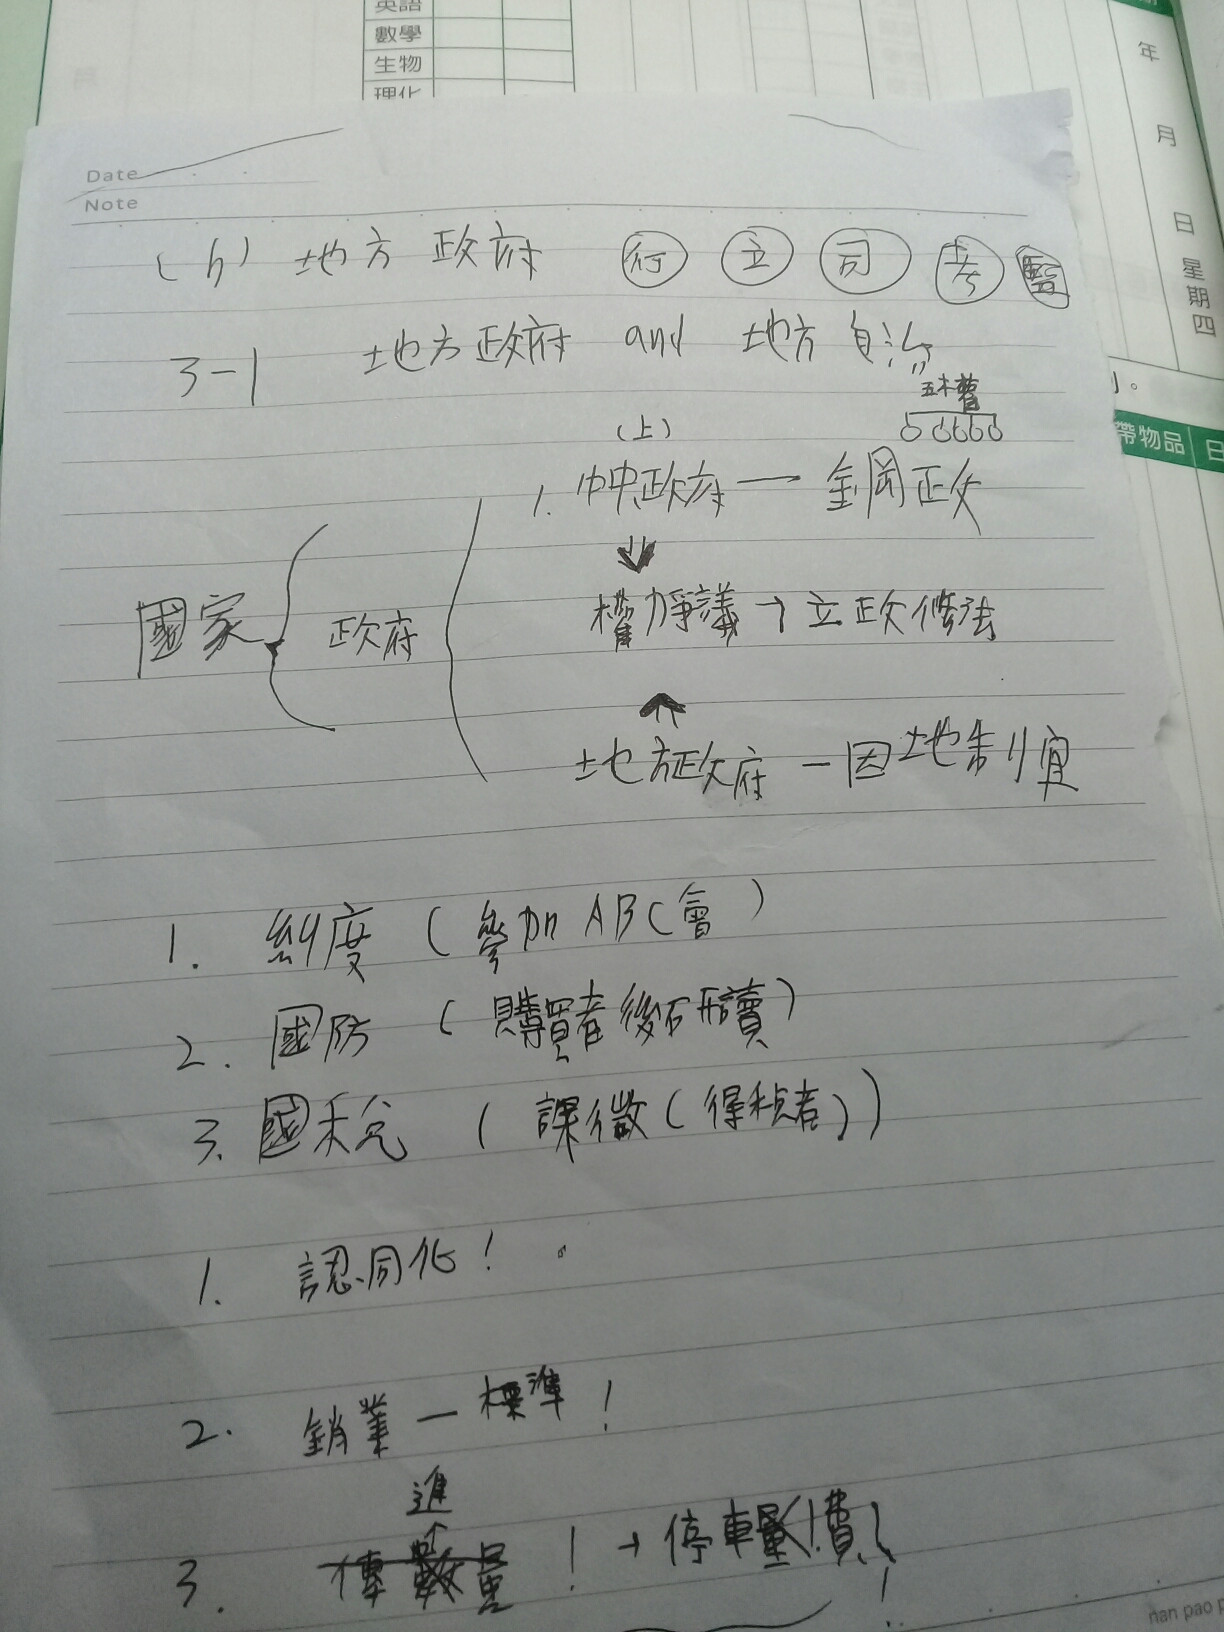 英語
數學
生物
理化
年
月
日
星期四
帶物品
日
Date
Note
地方政府 行 立 司 考 監
3-1 地方政府 and 地方自治
(上)
1. 中央政府 — 鋼政
權力爭議 → 立政修法
國家 政府
地方政府 — 因地制宜
1. 糾度 (參加ABC會)
2. 國防 (購買者後研讀)
3. 國稅 (課徵(得稅者))
1. 認同化!
2. 銷業 — 標準!
進
3. 數量! → 停車費!
nan pao